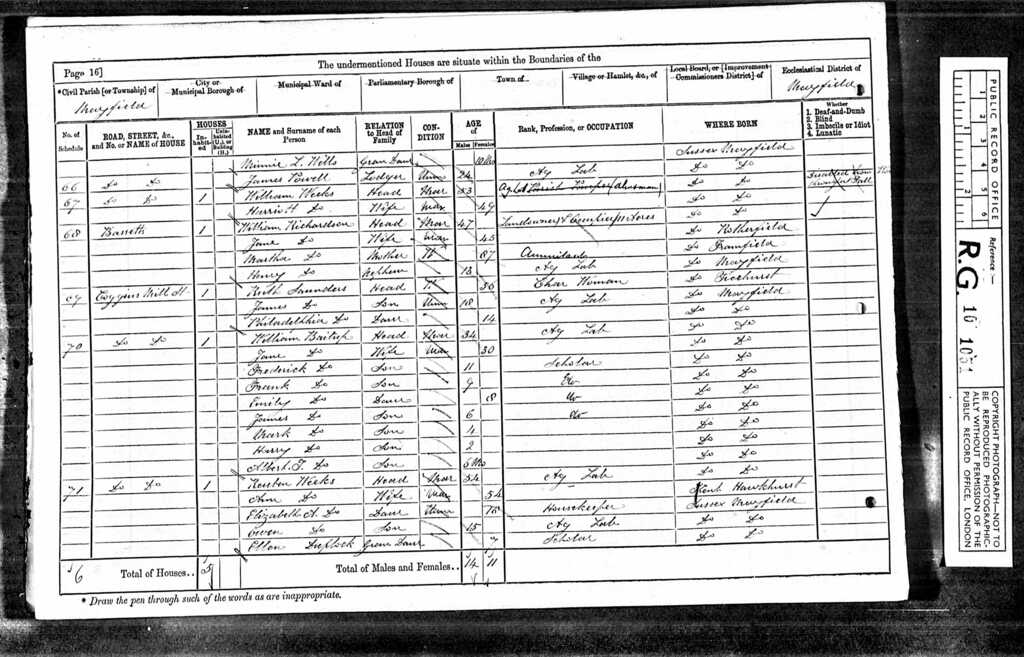 The undermentioned Houses are situate within the Boundaries of the
Page 16]
*Civil Parish [or Township] of
Mayfield
City or Municipal Borough of
Municipal Ward of
Parliamentary Borough of
Town of
Village or Hamlet, &c., of
Local Board, or [Improvement Commissioners District] of
Ecclesiastical District of
Mayfield
No. of Schedule
ROAD, STREET, &c., and No. or NAME of HOUSE
HOUSES
In-habit-ed
Unin-habited (U.), or Building (B.)
NAME and Surname of each Person
RELATION to Head of Family
CON-DITION
AGE of
Males
Females
Rank, Profession, or OCCUPATION
WHERE BORN
Whether
1. Deaf-and-Dumb
2. Blind
3. Imbecile or Idiot
4. Lunatic
Minnie L. Wells Gran Daur 10 Mo Sussex Mayfield
66 Do Do James Powell Lodger Unm 24 Ag Lab Do Do
67 Do Do 1 William Weeks Head Mar 53 Do Do
Harriet Do Wife Mar 49 Do Do
68 Bassetts 1 William Richardson Head Mar 47 Landowner Acres Do Do
Jane Do Wife Mar 43 Do Rotherfield
Martha Do Mother W 87 Annuitant Do Framfield
Henry Do Nephew 13 Ag Lab Do Mayfield
69 Coggins Mill St 1 Ruth Saunders Head W 50 Char Woman Do Ticehurst
James Do Son Unm 18 Ag Lab Do Mayfield
Philadelphia Do Daur 14 Do Do
70 Do Do 1 William Head Mar 34 Ag Lab Do Do
Jane Do Wife Mar 30 Do Do
Frederick Do Son 11 Scholar Do Do
Frank Do Son 9 Do Do Do
Emily Do Daur 8 Do Do Do
James Do Son 6 Do Do Do
Mark Do Son 4 Do Do
Harry Do Son 2 Do Do
Albert Do Son 5 Mo Do Do
71 Do Do 1 Reuben Weeks Head Mar 54 Ag Lab Do Do
Ann Do Wife Mar 54 Kent Hawkhurst
Elizabeth A. Do Daur Unm 18 Housekeeper Sussex Mayfield
Owen Do Son 15 Ag Lab Do Do
Ellen Duplock Gran Daur 7 Scholar Do Do
Total of Houses.. 5
Total of Males and Females.. 14 11
* Draw the pen through such of the words as are inappropriate.
PUBLIC RECORD OFFICE
1 2 3 4 5 6
1 2
Reference:-
R.G. 10
COPYRIGHT PHOTOGRAPH—NOT TO BE REPRODUCED PHOTOGRAPHIC-ALLY WITHOUT PERMISSION OF THE PUBLIC RECORD OFFICE, LONDON